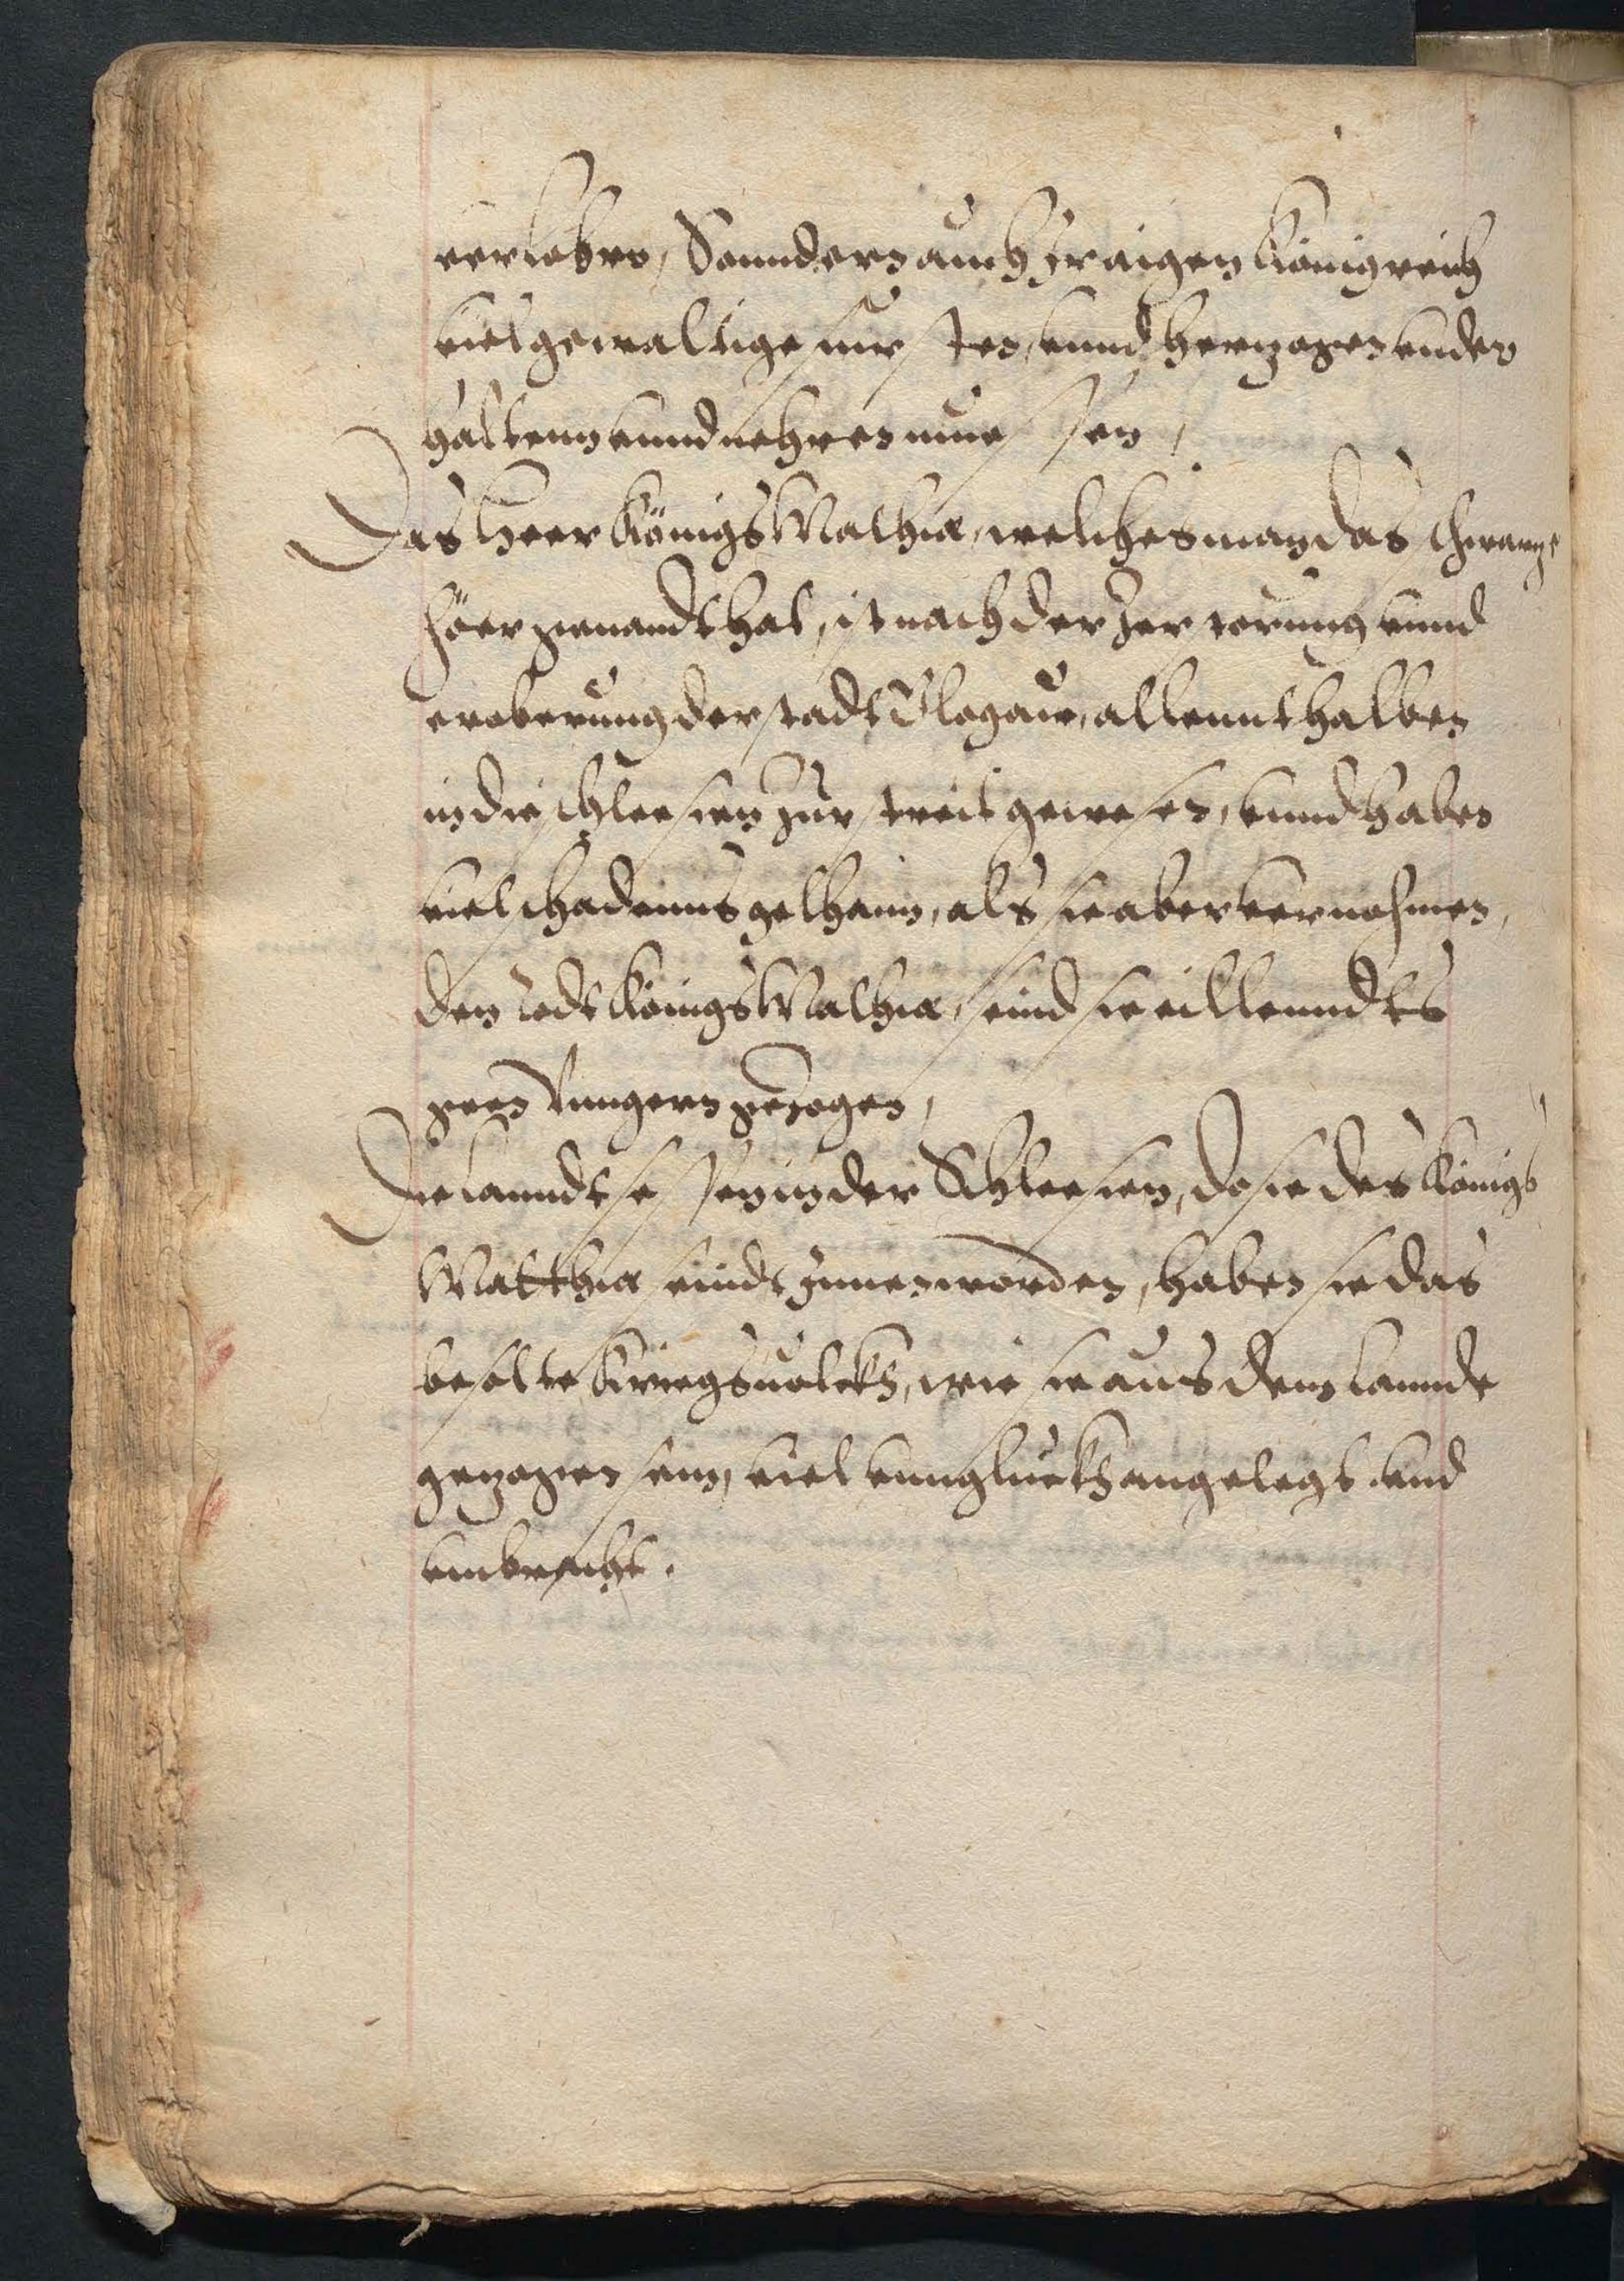 verlobro, Sonndern auch Jr aigen Königreich
viel gewaltige fursten, unnd herzogen under
haltenn unnd nehren muessen,
Das Heer Königs Mathiæ, welches man das schwarze
Höer genandt hat, ist nach der Zerstorung unnd
eroberung der stadt Glogaw, allennthalben
in die Schleesien zurstreit gewesen, unnd haben
viel schadenns gethann, als sie aber vernohmen,
den todt Königs Mathiæ, seind sie eillenndts
geen Vungern gezogen,
Die Lanndtsessen in der Schleesien, do sie des Königs
Matthiæ seindt Jnnen worden, haben sie das
besolte Kriegsuolckh, wie sie aus dem Lannde
gezogen sein, viel unnglückh angelegt und
umbracht.